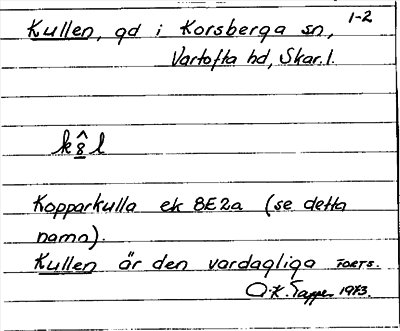 1-2
Kullen, gd i Korsberga sn,
Vartofta hd, Skar.l.
Kopparkulla ek 8E2a (se detta
namn).
Kullen är den vardagliga FORTS.
1973.